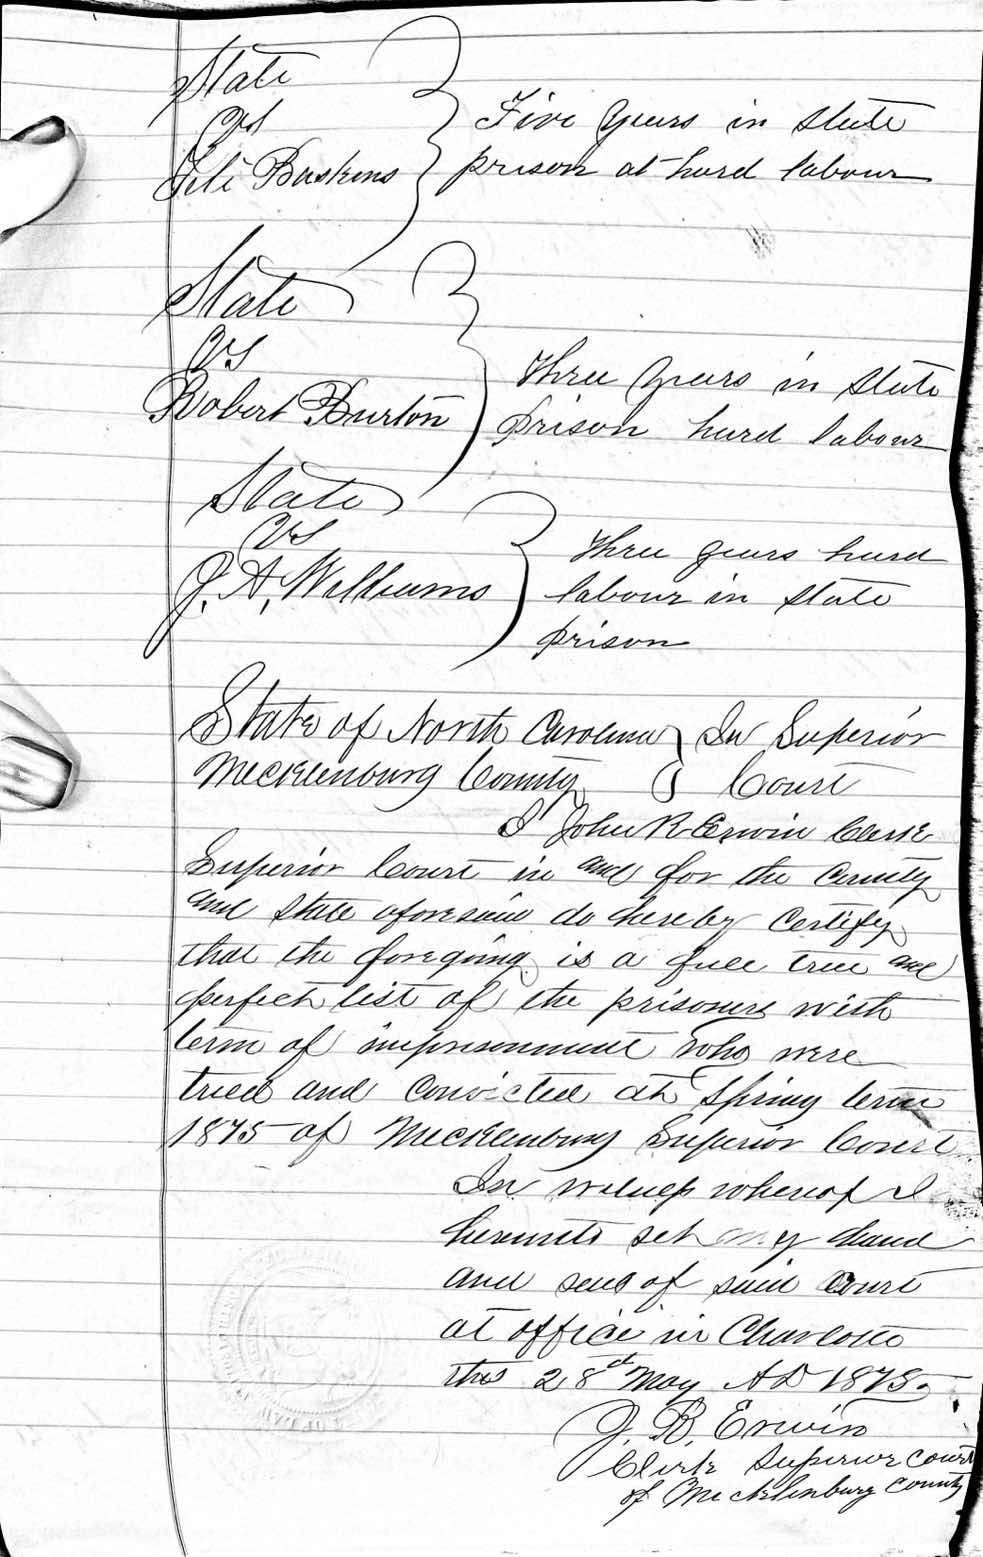 State
vs
Baskins
Five years in state
prison at hard labour
State
vs
Robert Burton
Three years in state
prison hard labour
State
vs
J. A. Williams
Three years hard
labour in state
prison
State of North Carolina } In Superior
Mecklenburg County } Court
I John R Erwin Clerk
Superior Court in and for the County
and state aforesaid do hereby certify
that the foregoing is a full true and
perfect list of the prisoners with
term of imprisonment who were
tried and convicted at Spring term
1875 of Mecklenburg Superior Court
In witness whereof I
hereunto set my hand
and seal of said Court
at office in Charlotte
this 28th May AD 1875.
J. R. Erwin
Clerk Superior Court
of Mecklenburg County